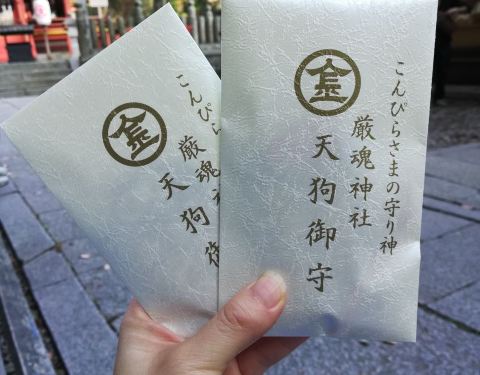 こんぴらさまの守り神
厳魂神社
金
天狗御守
こんぴら
厳魂
金
天狗御